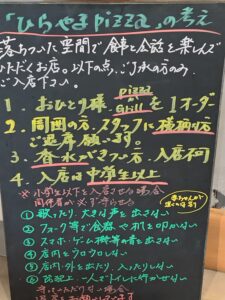 「ひらやまpizza」の考え
落ちついた空間で食事と会話を楽しんで
いただくお店。以下の点、ご了承の方のみ
ご入店下さい。
1. おひとり様、pizza Grill を1オーダー
2. 周囲の方、スタッフに横柄の方
ご退席願います。
3. 香水がきつい方 入店不可
4. 入店は中学生以上
※小学生以下を入店させる場合
同伴者が必ず守らせる
① 歌ったり、大きな声を出さない
② フォーク等で食器や机を叩かない
③ スマホ・ゲーム機等の音を出さない
④ 店内をウロウロしない
⑤ 店内・外を出たり、入ったりしない
⑥ 一人でトイレに行かせない